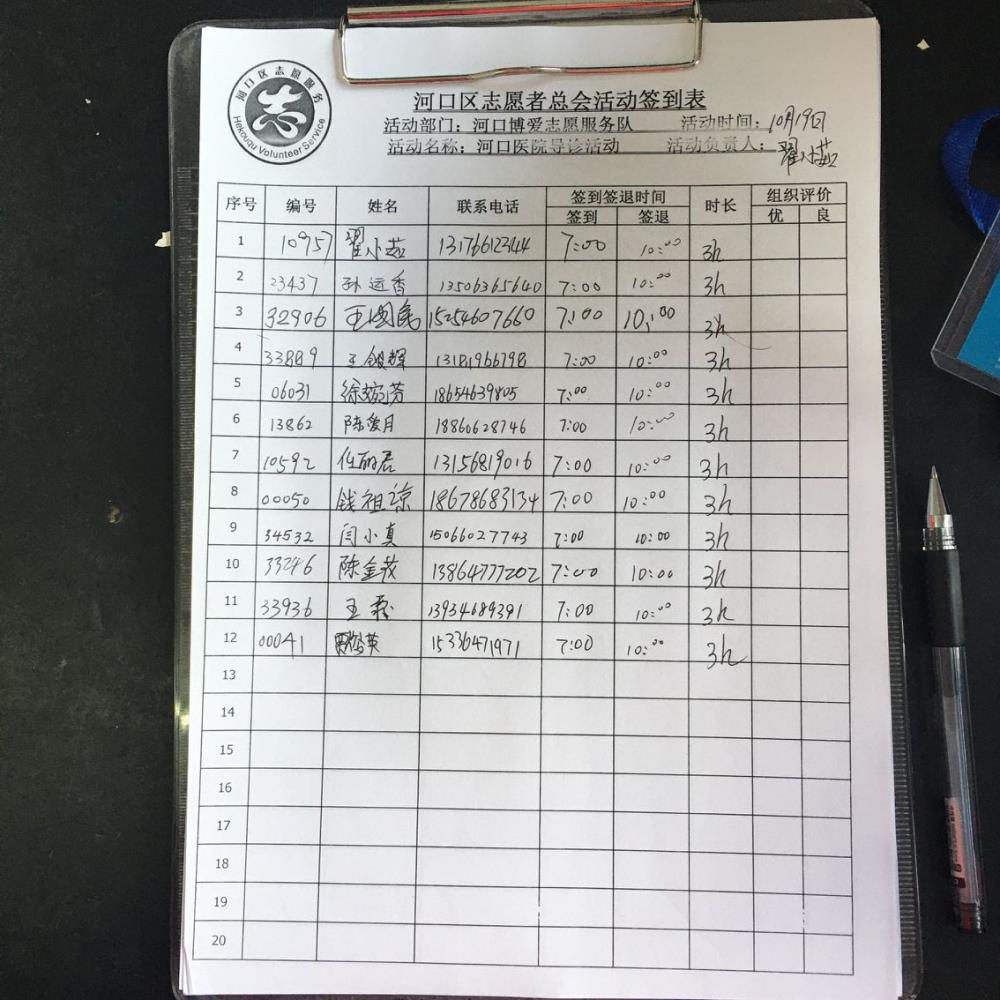 河口区志愿服务
志
Hekouqu Volunteer Service
河口区志愿者总会活动签到表
活动部门：河口博爱志愿服务队 活动时间：10月19日
活动名称：河口医院导诊活动 活动负责人：翟小茹
序号 编号 姓名 联系电话 签到签退时间 时长 组织评价
签到 签退 优 良
1 10957 翟小茹 13176612344 7:00 10:00 3h
2 23437 孙运香 13506365640 7:00 10:00 3h
3 32906 王国 15254607660 7:00 10:00 3h
4 33889 王 辉 13181966798 7:00 10:00 3h
5 06031 徐婉芳 18654639805 7:00 10:00 3h
6 13862 陈爱月 18860628746 7:00 10:00 3h
7 10592 任丽君 13156819016 7:00 10:00 3h
8 00050 钱祖琼 18678683134 7:00 10:00 3h
9 34532 闫小真 15066027743 7:00 10:00 3h
10 33246 陈金 13864777202 7:00 10:00 3h
11 33936 王 13934689391 7:00 10:00 3h
12 00041 英 15336471971 7:00 10:00 3h
13
14
15
16
17
18
19
20